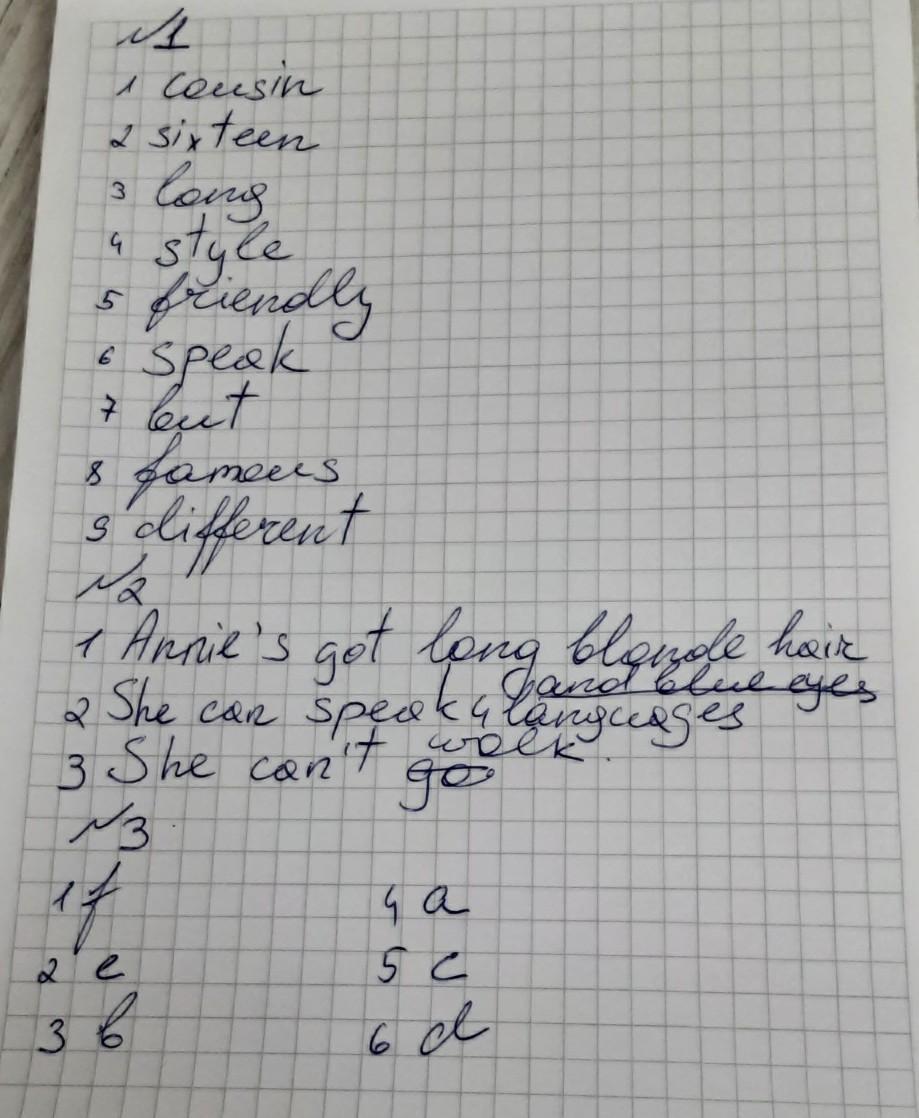 №1
1 cousin
2 sixteen
3 long
4 style
5 friendly
6 speak
7 but
8 famous
9 different
№2
1 Annie's got long blonde hair
and blue eyes
2 She can speak 4 languages
3 She can't go walk.
№3
1 f 4 a
2 e 5 c
3 b 6 d